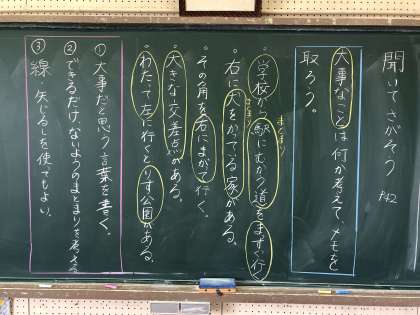 聞いてさがそう P42
大事なことは何か考えて、メモを
取ろう。
まとまり
まとまり
・学校から駅にむかう道をまっすぐ行く
・右に犬をかてる家がある。
・その角を右にまがて行く。
・大きな交差点がある。
・わたって左に行くとりす公園がある。
① 大事だと思う言葉を書く。
② できるだけ、ないようのまとまりを考える
③ 線 矢じるしを使てもよい。